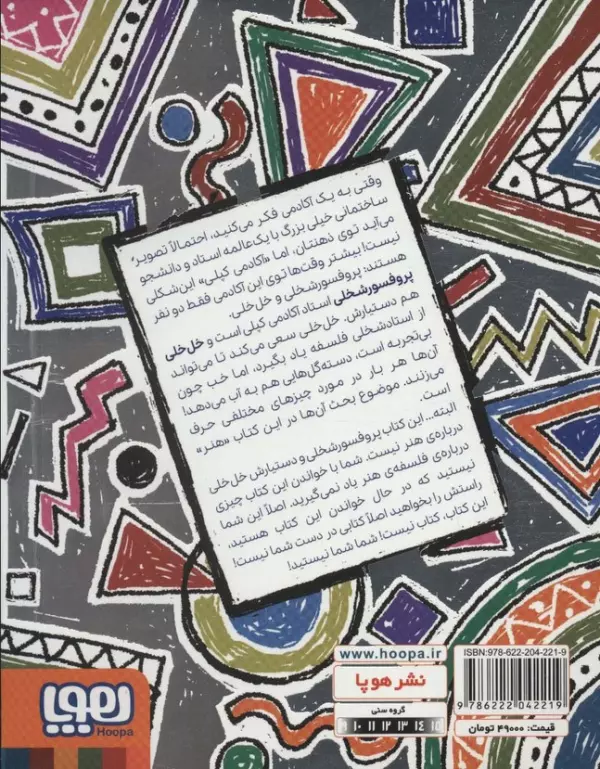 وقتی به یک آکادمی فکر می‌کنید، احتمالاً تصویر
ساختمانی خیلی بزرگ با یک عالمه استاد و دانشجو
می‌آید توی ذهنتان، اما «آکادمی کپلی» این شکلی
نیست! بیشتر وقت‌ها توی این آکادمی فقط دو نفر
هستند: پروفسورشخلی و خل‌خلی.
پروفسورشخلی استاد آکادمی کپلی است و خل‌خلی
هم دستیارش. خل‌خلی سعی می‌کند تا می‌تواند
از استادشخلی فلسفه یاد بگیرد، اما خب چون
بی‌تجربه است، دسته‌گل‌هایی هم به آب می‌دهد!
آن‌ها هر بار در مورد چیزهای مختلفی حرف
می‌زنند. موضوع بحث آن‌ها در این کتاب «هنر»
است.
البته... این کتاب پروفسورشخلی و دستیارش خل‌خلی
درباره‌ی هنر نیست. شما با خواندن این کتاب چیزی
درباره‌ی فلسفه‌ی هنر یاد نمی‌گیرید. اصلاً این شما
نیستید که در حال خواندن این کتاب هستید،
راستش را بخواهید اصلاً کتابی در دست شما نیست!
این کتاب، کتاب نیست! شما شما نیستید!
هوپا
Hoopa
www.hoopa.ir
نشر هوپا
گروه سنی
۹ ۱۰ ۱۱ ۱۲ ۱۳ ۱۴ ۱۵
ISBN:978-622-204-221-9
9 786222 042219
قیمت: ۴۹۰۰۰ تومان